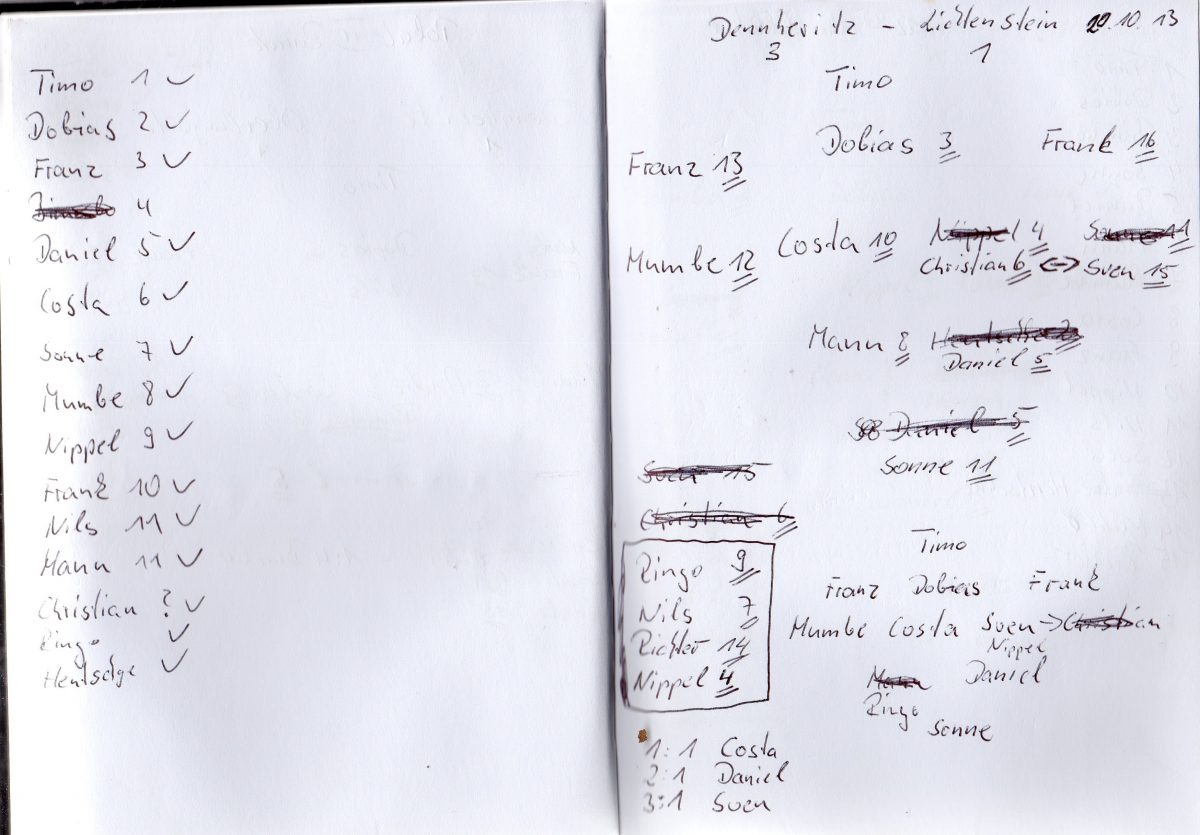 Timo 1 ✓
Dobias 2 ✓
Franz 3 ✓
4
Daniel 5 ✓
Costa 6 ✓
Sonne 7 ✓
Mumbe 8 ✓
Nippel 9 ✓
Frank 10 ✓
Nils 11 ✓
Mann 11 ✓
Christian ? ✓
Ringo ✓
Hentschge ✓
Dennheritz - Lichtenstein 20.10.13
3 1
Timo
Dobias 3 Frank 16
Franz 13
Costa 10 Nippel 4 Sonne 11
Mumbe 12 Christian 6 <-> Sven 15
Mann 8
Daniel 5
Daniel 5
Sonne 11
Sven 15
Christian 6
Ringo 9
Nils 7
Richter 14
Nippel 4
Timo
Franz Dobias Frank
Mumbe Costa Sven -> Christian
Nippel
Mann Daniel
Ringo
Sonne
1:1 Costa
2:1 Daniel
3:1 Sven